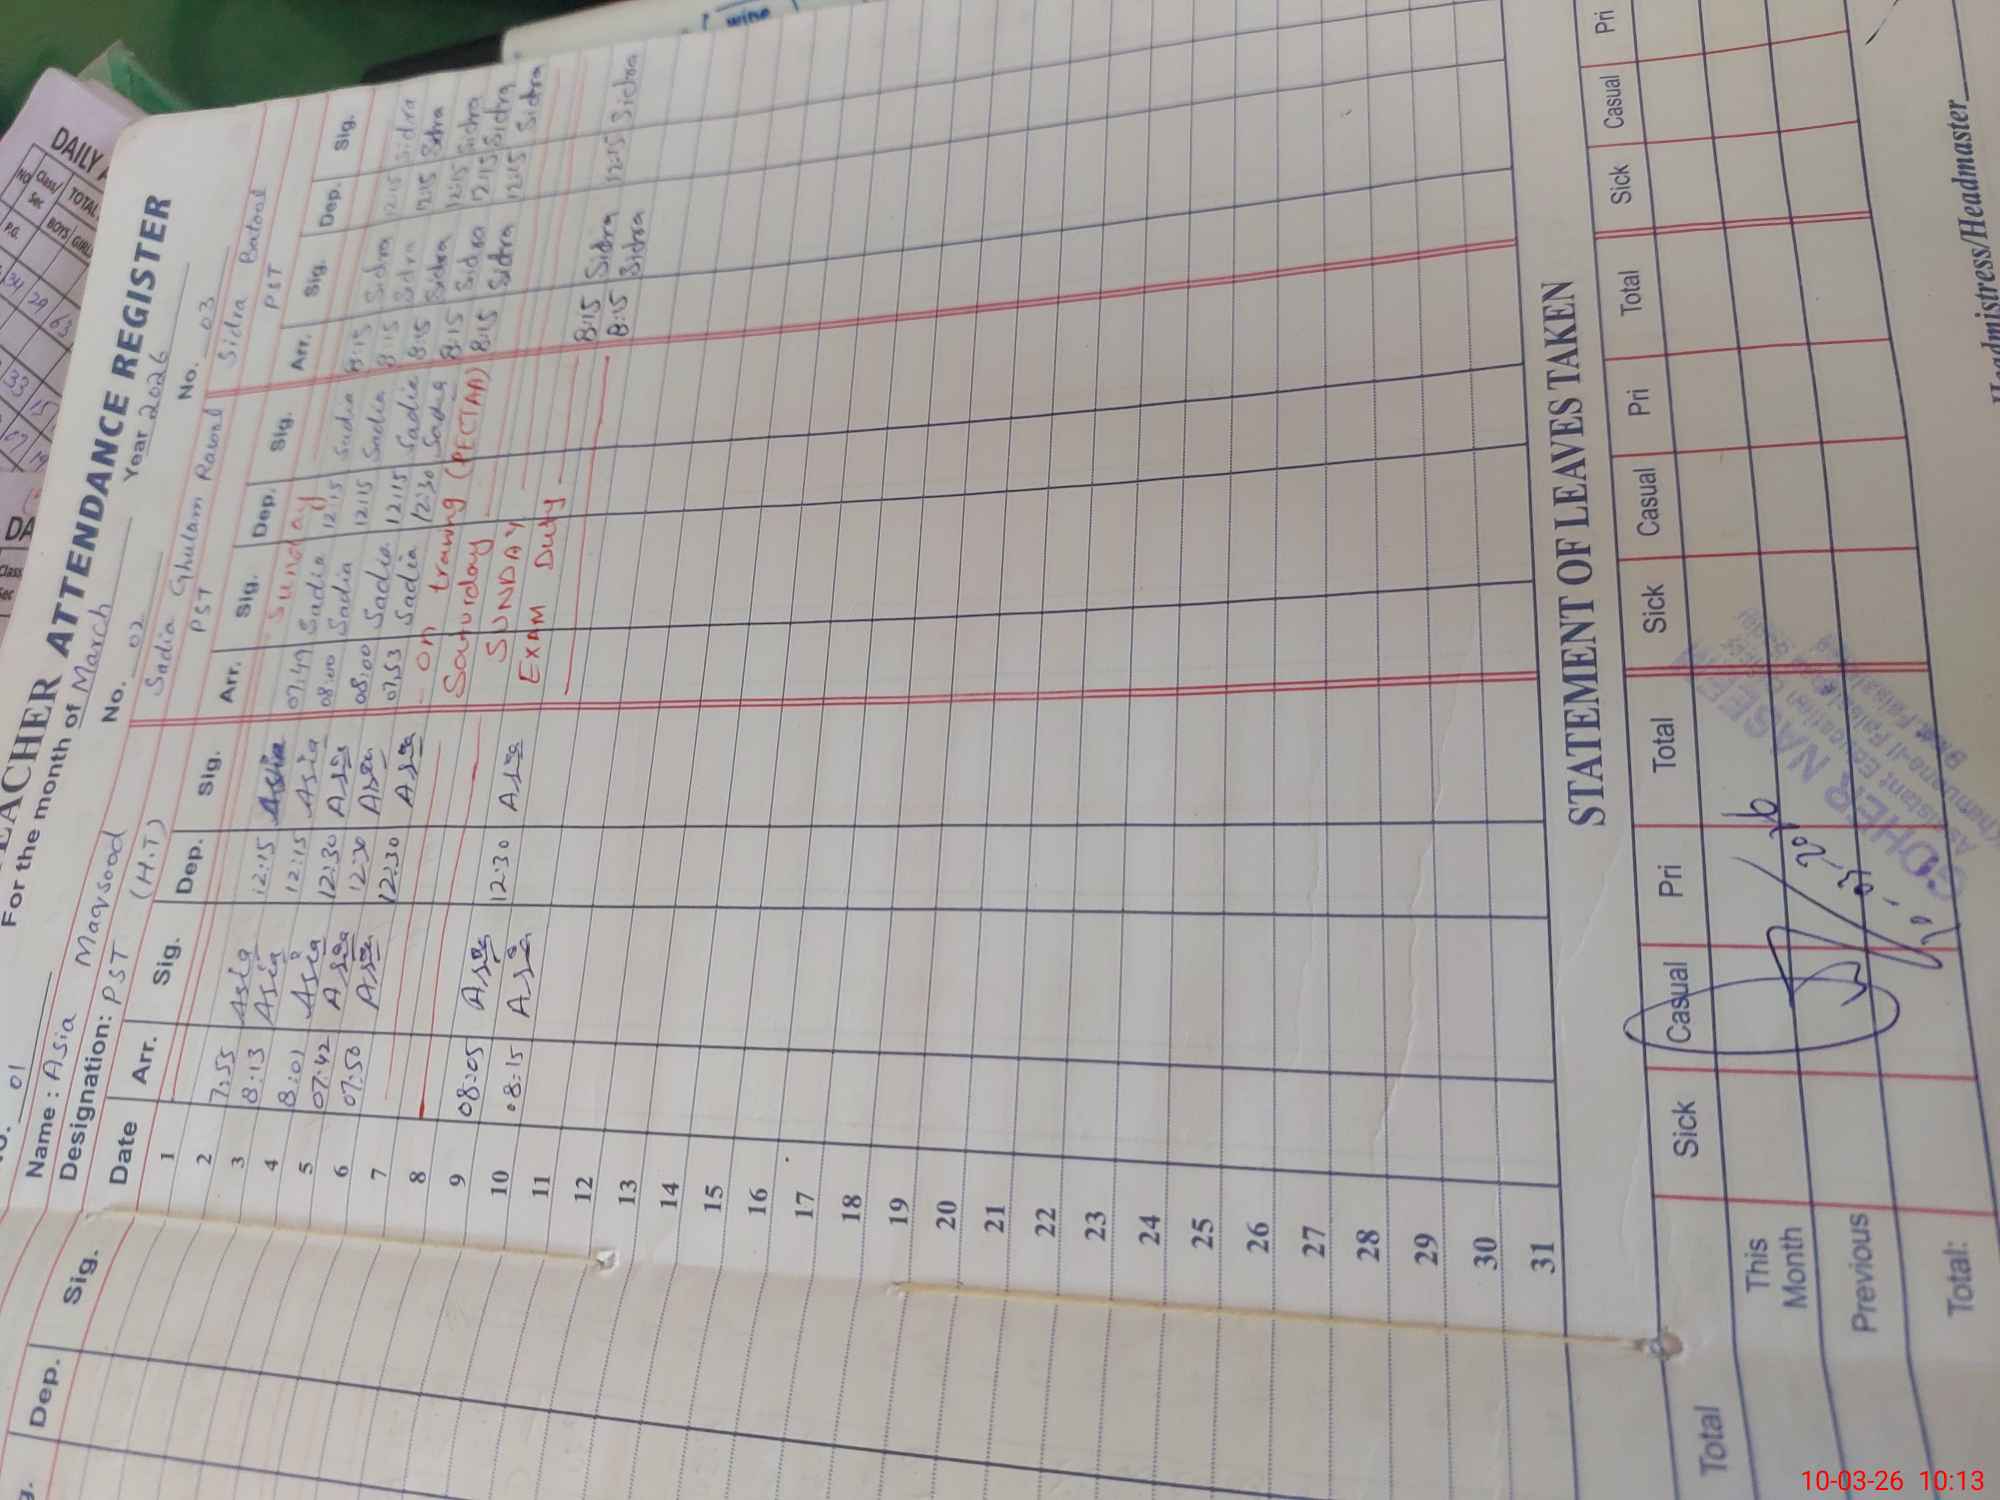 TEACHER ATTENDANCE REGISTER
For the month of March Year 2026
No. 01
No. 02
No. 03
Name : Asia Maqsood
Designation: PST (H.T)
Sadia Ghulam Rasool
PST
Sidra Batool
PST
Date Arr. Sig. Dep. Sig. Arr. Sig. Dep. Sig. Arr. Sig. Dep. Sig.
1 Sunday
2 7:55 Asia 12:15 Asia 07:49 Sadia 12:15 Sadia 8:15 Sidra 12:15 Sidra
3 8:13 Asia 12:15 Asia 08:00 Sadia 12:15 Sadia 8:15 Sidra 12:15 Sidra
4 8:01 Asia 12:30 Asia 08:00 Sadia 12:15 Sadia 8:15 Sidra 12:15 Sidra
5 07:42 Asia 12:30 Asia 07:53 Sadia 12:30 Sadia 8:15 Sidra 12:15 Sidra
6 07:50 Asia 12:30 Asia on traning (PECTAA) 8:15 Sidra 12:15 Sidra
7 Saturday
8 SUNDAY
9 08:05 Asia 12:30 Asia EXAM Duty 8:15 Sidra 12:15 Sidra
10 08:15 Asia 8:15 Sidra
11
12
13
14
15
16
17
18
19
20
21
22
23
24
25
26
27
28
29
30
31
STATEMENT OF LEAVES TAKEN
Total Sick Casual Pri Total Sick Casual Pri Total Sick Casual Pri
This Month
Previous
Total:
Headmistress/Headmaster
Dep. Sig.
DAILY
Class/Sec TOTAL
BOYS GIRL
P.G.
34 29 63
33 15
wine
10-03-26 10:13